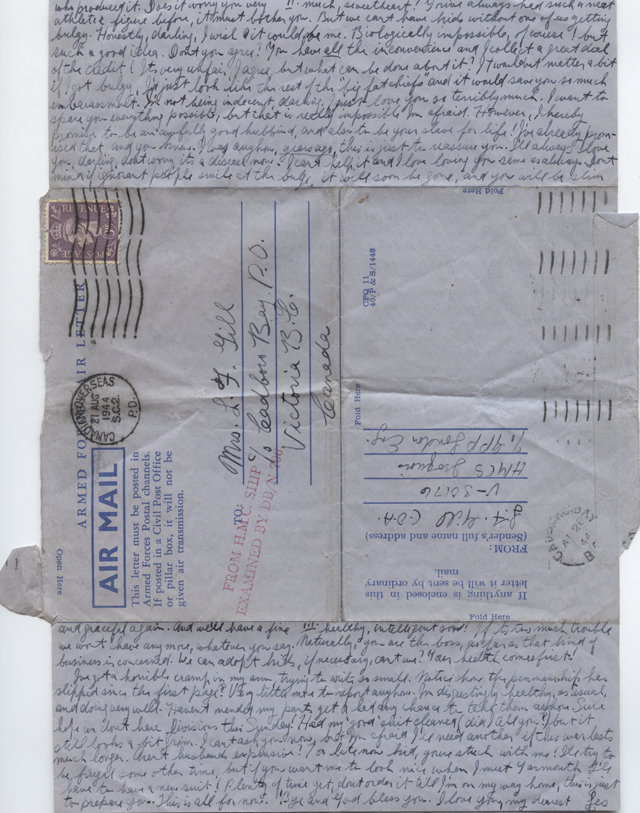 who produced it. Does it worry you very !! much, sweetheart! You've always had such a neat
athletic figure before, it must bother you. But we can't have kids without one of us getting
bulgy. Honestly, darling, I wish it could be me. Biologically impossible, of course! but
such a good idea. Don't you agree? You have all the inconvenience and I collect a great deal
of the credit! It's very unfair, I agree, but what can be done about it? I wouldn't matter a bit
if I got bulgy, I'd just look like the rest of the big fat chiefs and it would save you so much
embarrassment. I'm not being indecent, darling, I just love you so terribly much. I want to
spare you everything possible, but that is really impossible I'm afraid. However, I hereby
promise to be an awfully good hubbind, and also to be your slave for life! I've already prom-
ised that, and you know. I was anyhow, this is just to reassure you. I'll always love
you, darling, don't worry, it's a disease now! I can't help it and I love loving you same as always. Don't
mind if ignorant people smile at the bulge, it will soon be gone, and you will be slim
REVENUE
ARMED FORCES AIR LETTER
CANADIAN OVERSEAS
21 AUG
1944
S.C.2.
P.O.
AIR MAIL
This letter must be posted in
Armed Forces Postal channels.
If posted in a Civil Post Office
or pillar box, it will not be
given air transmission.
Open Here
TO:
Mrs. L. F. Gill
℅ Cadboro Bay P.O.
Victoria B.C.
Canada
FROM H.M.C. SHIP
EXAMINED BY DB/N
Fold Here
CFO 11
40/P & S/1448
Fold Here
If anything is enclosed in this
letter it will be sent by ordinary
mail.
FROM:
(Sender's full name and address)
L.F. Gill C.O.A.
V-30176
HMCS Iroquois
℅ GPO London Eng.
CADBORO BAY
B.C.
Fold Here
and graceful again. And we'll have a fine !!! healthy, intelligent son! If it's too much trouble
we won't have any more, whatever you say. Naturally, you are the boss, as far as that kind of
business is concerned. We can adopt kids, if necessary, can't we? Your health comes first!
I've got a horrible cramp in my arm trying to write so small. Notice how the penmanship has
slipped since the first page? Very little more to report anyhow. I'm disgustingly healthy, as usual,
and doing very well. Haven't mended my pants yet & had any chance to take them ashore. Sure
hope we don't have Divisions this Sunday! Had my 'good' suit cleaned (did I tell you?) but it
still looks a bit grim. I can't ask you now, but I'm afraid I'll need another if this war lasts
much longer. Aren't husbands expensive? Too late now kid, you're stuck with me! I'll try to
be frugal some other time, but if you want me to look nice when I meet Yarmouth I'll
have to have a new suit! Plenty of time yet, don't order it till I'm on my way home, this is just
to prepare you. This is all for now. 'Bye and God bless you. I love you, my dearest Les